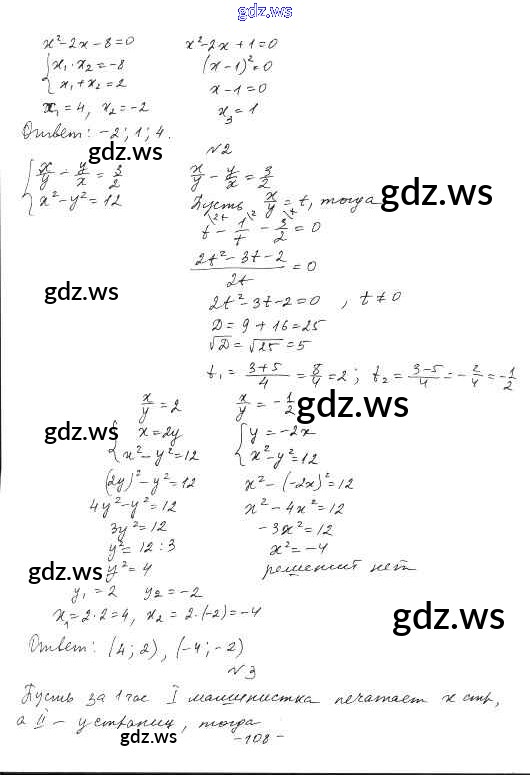 gdz.ws
x²-2x-8=0    x²-2x+1=0
{x₁·x₂=-8    (x-1)²=0
x₁+x₂=2    x-1=0
x₁=4, x₂=-2    x₃=1
Ответ: -2; 1; 4.
gdz.ws
№2
{x/y - y/x = 3/2    x/y - y/x = 3/2
x²-y²=12    Пусть x/y = t, тогда
gdz.ws
t - 1/t - 3/2 = 0
(2t²-3t-2)/2t = 0
gdz.ws
2t²-3t-2=0 , t≠0
D=9+16=25
√D=√25=5
t₁=(3+5)/4=8/4=2; t₂=(3-5)/4=-2/4=-1/2
gdz.ws
x/y=2    x/y=-1/2
gdz.ws
{x=2y    {y=-2x
x²-y²=12    x²-y²=12
(2y)²-y²=12    x²-(-2x)²=12
4y²-y²=12    x²-4x²=12
3y²=12    -3x²=12
y²=12:3    x²=-4
gdz.ws
y²=4    решений нет
y₁=2 y₂=-2
x₁=2·2=4, x₂=2·(-2)=-4
gdz.ws
Ответ: (4;2), (-4;-2)
№3
Пусть за 1 час I машинистка печатает x стр,
а II - y страниц, тогда
gdz.ws
-108-